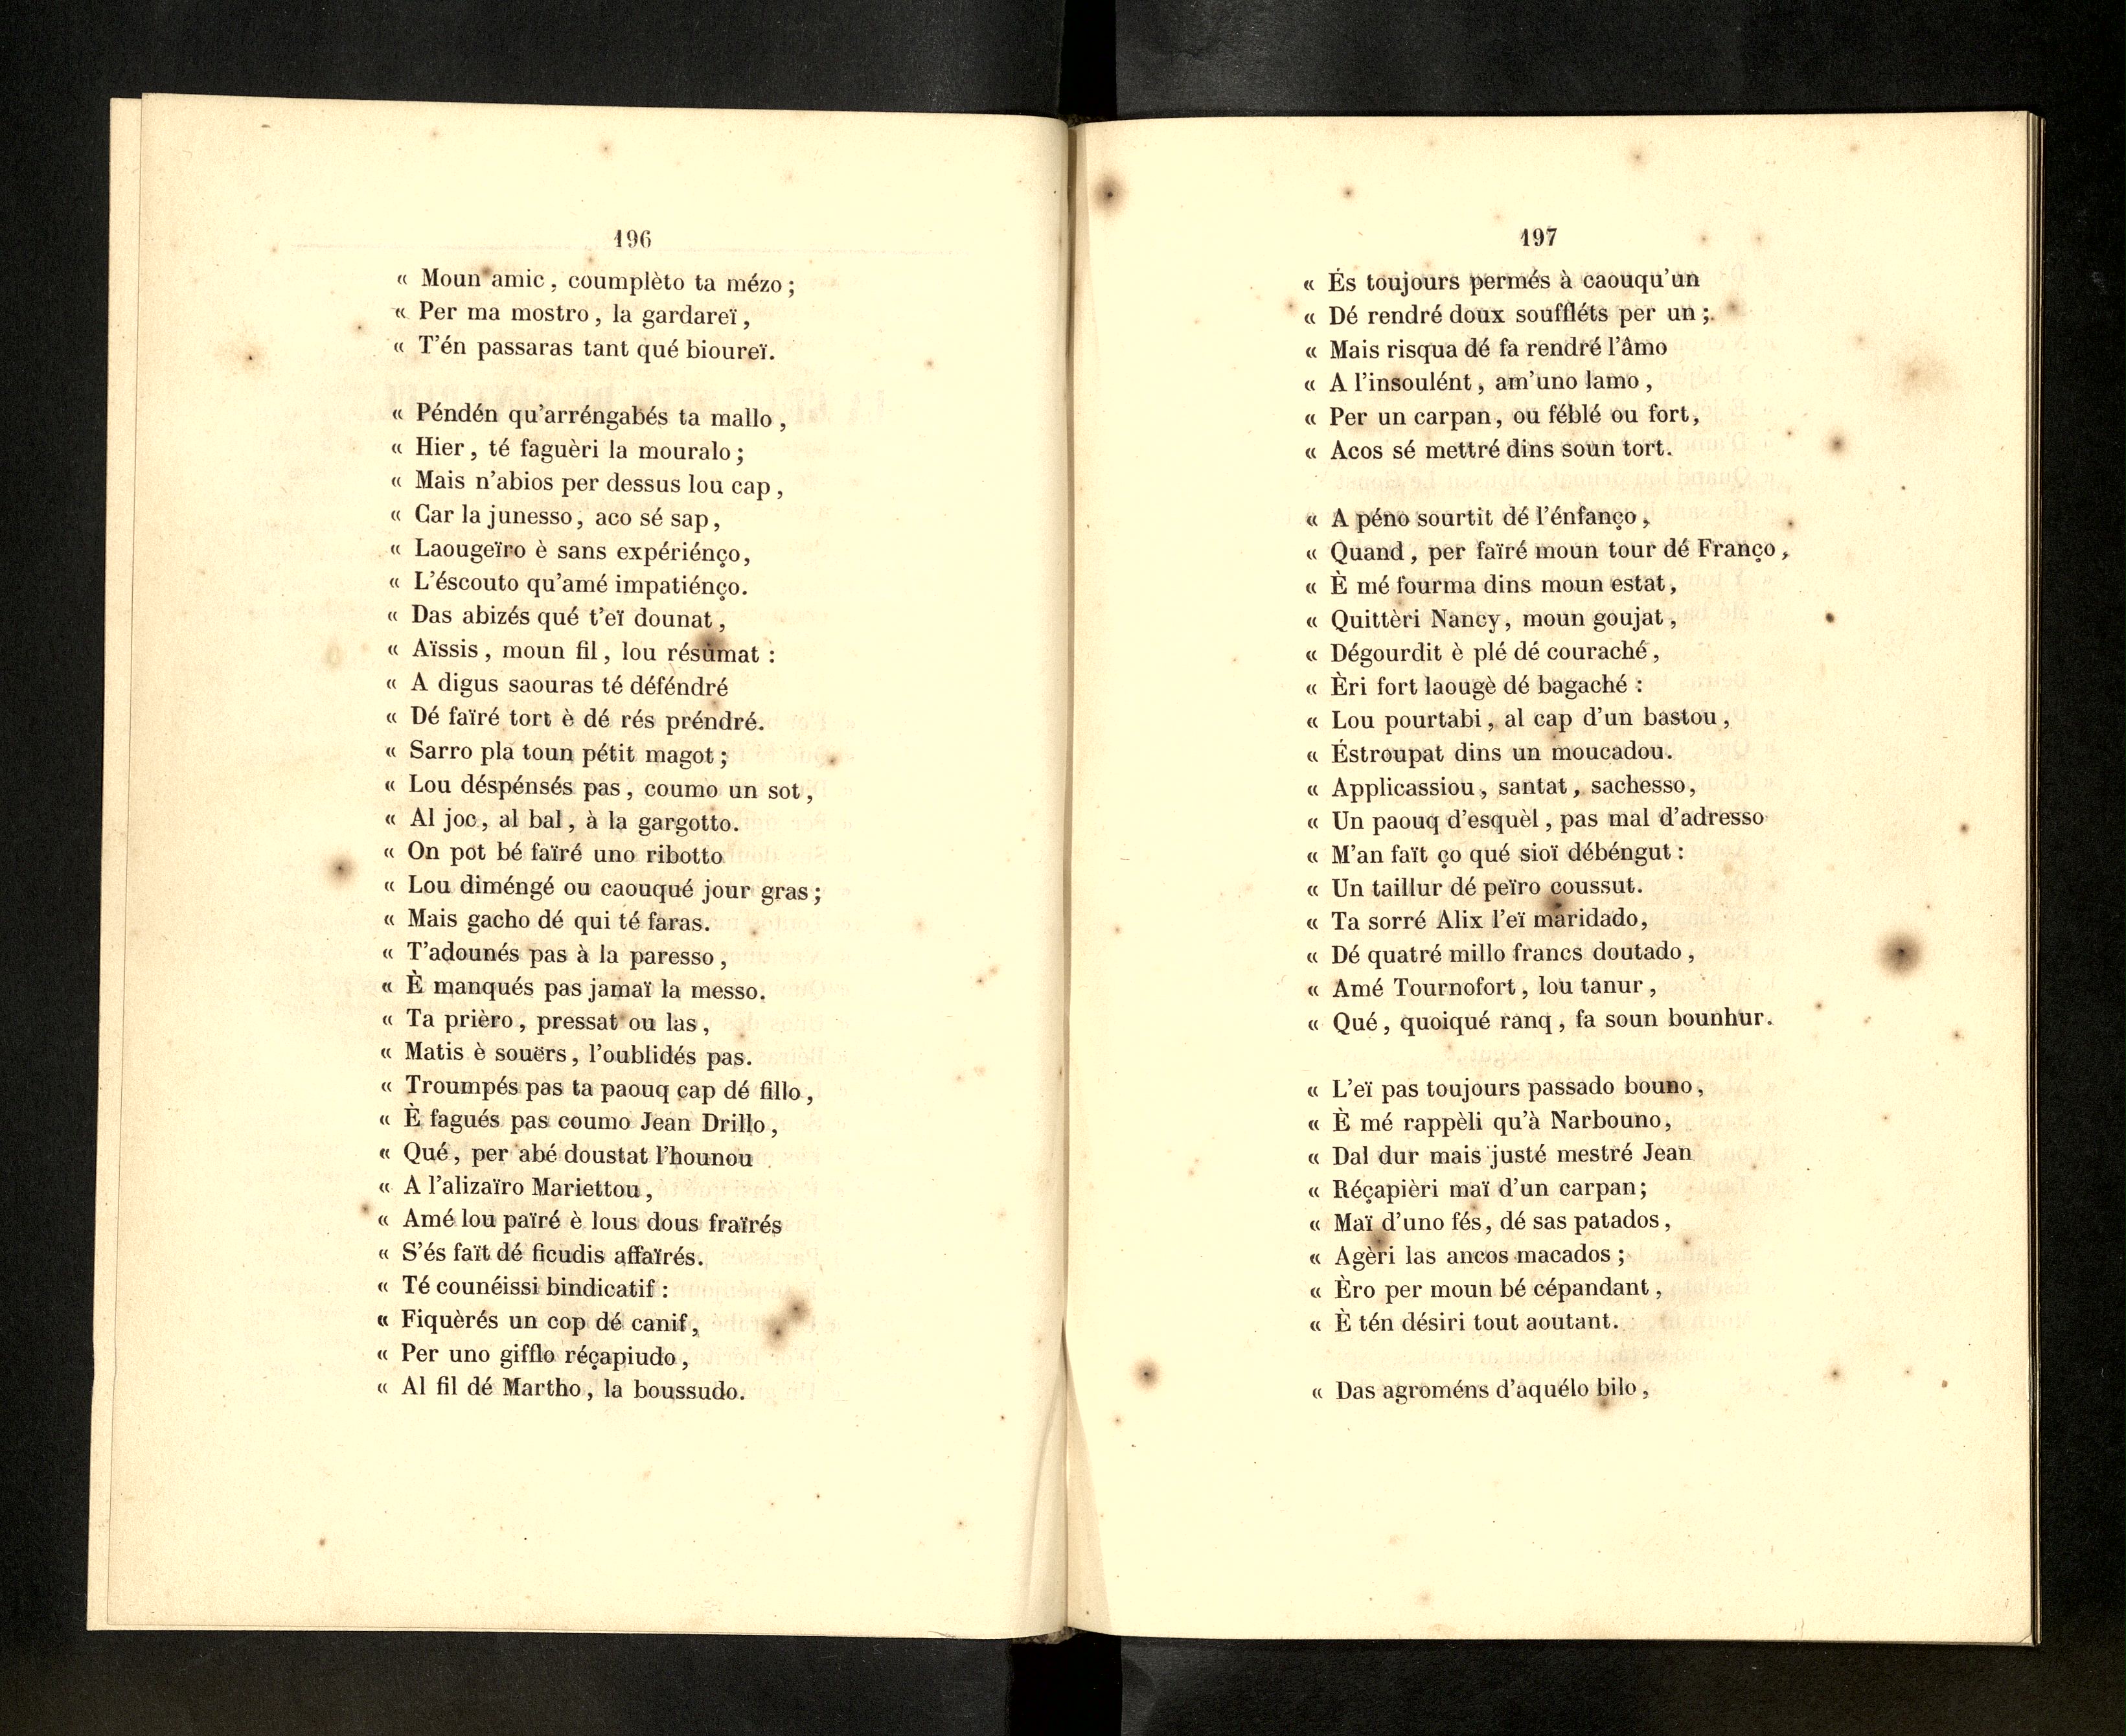 196
« Moun amic, coumplèto ta mézo ;
« Per ma mostro, la gardareï,
« T'én passaras tant qué bioureï.
« Péndén qu'arréngabés ta mallo,
« Hier, té faguèri la mouralo ;
« Mais n'abios per dessus lou cap,
« Car la junesso, aco sé sap,
« Laougeïro è sans expériénço,
« L'éscouto qu'amé impatiénço.
« Das abizés qué t'eï dounat,
« Aïssis, moun fil, lou résumat :
« A digus saouras té déféndré
« Dé faïré tort è dé rés préndré.
« Sarro pla toun pétit magot ;
« Lou déspénsés pas, coumo un sot,
« Al joc, al bal, à la gargotto.
« On pot bé faïré uno ribotto
« Lou diméngé ou caouqué jour gras ;
« Mais gacho dé qui té faras.
« T'adounés pas à la paresso,
« È manqués pas jamaï la messo.
« Ta prièro, pressat ou las,
« Matis è souërs, l'oublidés pas.
« Troumpés pas ta paouq cap dé fillo,
« È fagués pas coumo Jean Drillo,
« Qué, per abé doustat l'hounou
« A l'alizaïro Mariettou,
« Amé lou païré è lous dous fraïrés
« S'és faït dé ficudis affaïrés.
« Té counéissi bindicatif :
« Fiquèrés un cop dé canif,
« Per uno gifflo réçapiudo,
« Al fil dé Martho, la boussudo.
197
« És toujours permés à caouqu'un
« Dé rendré doux souffléts per un ;
« Mais risqua dé fa rendré l'âmo
« A l'insoulént, am'uno lamo,
« Per un carpan, ou féblé ou fort,
« Acos sé mettré dins soun tort.
« A péno sourtit dé l'énfanço,
« Quand, per faïré moun tour dé Franço,
« È mé fourma dins moun estat,
« Quittèri Nancy, moun goujat,
« Dégourdit è plé dé couraché,
« Èri fort laougè dé bagaché :
« Lou pourtabi, al cap d'un bastou,
« Éstroupat dins un moucadou.
« Applicassiou, santat, sachesso,
« Un paouq d'esquèl, pas mal d'adresso
« M'an faït ço qué sioï débéngut :
« Un taillur dé peïro coussut.
« Ta sorré Alix l'eï maridado,
« Dé quatré millo francs doutado,
« Amé Tournofort, lou tanur,
« Qué, quoiqué ranq, fa soun bounhur.
« L'eï pas toujours passado bouno,
« È mé rappèli qu'à Narbouno,
« Dal dur mais justé mestré Jean
« Réçapièri maï d'un carpan ;
« Maï d'uno fés, dé sas patados,
« Agèri las ancos macados ;
« Èro per moun bé cépandant,
« È tén désiri tout aoutant.
« Das agroméns d'aquélo bilo,